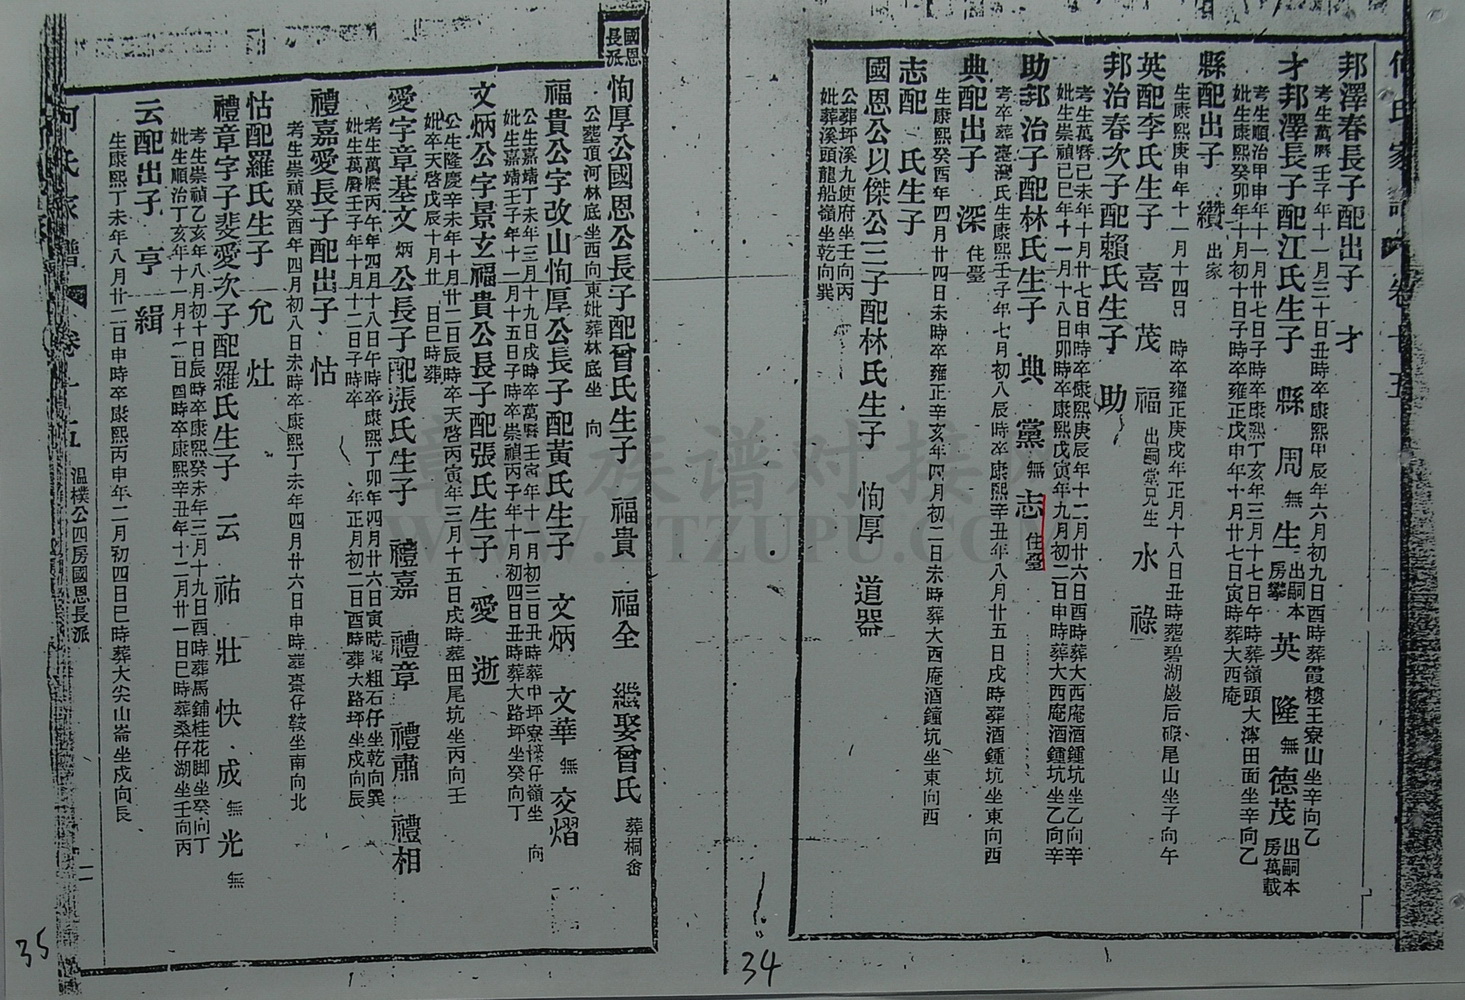 何氏家譜 卷十五
邦澤春長子配出子 才
考生萬曆壬子年十一月三十日丑時卒康熙甲辰年六月初九日酉時葬霞樓王寮山坐辛向乙
才邦澤長子配江氏生子 縣 周 無 生 出嗣本房攀 英 隆 無 德茂 出嗣本房萬載
考生順治甲申年十一月廿七日子時卒康熙丁亥年三月十七日午時葬嶺頭大濘田面坐辛向乙
妣生康熙癸卯年十月初十日子時卒雍正戊申年十月廿七日寅時葬大西庵
縣配出子 纘 出家
生康熙庚申年十一月十四日 時卒雍正庚戌年正月十八日丑時葬碧湖巖后磜尾山坐子向午
英配李氏生子 喜 茂 福 出嗣堂兄生 水 祿
邦治春次子配賴氏生子 助
考生萬曆己未年十月廿七日申時卒康熙庚辰年十二月廿六日酉時葬大西庵酒鍾坑坐乙向辛
妣生崇禎己巳年十一月十八日卯時卒康熙戊寅年九月初二日申時葬大西庵酒鍾坑坐乙向辛
助邦治子配林氏生子 典 黨 無 志 住臺
考卒葬臺灣氏生康熙壬子年七月初八辰時卒康熙辛丑年八月廿五日戌時葬酒鍾坑坐東向西
典配出子 深 住臺
生康熙癸酉年四月廿四日未時卒雍正辛亥年四月初二日未時葬大西庵酒鐘坑坐東向西
志配 氏生子
國恩公以傑公三子配林氏生子 恂厚 道器
公葬坪溪九使府坐壬向丙
妣葬溪頭龍船嶺坐乾向巽
34
國恩長派
恂厚公國恩公長子配曾氏生子 福貴 福全 繼娶曾氏 葬桐畬
公葬頂河林底坐西向東妣葬林底坐 向
福貴公字改山恂厚公長子配黃氏生子 文炳 文華 無 交熠
公生嘉靖丁未年三月十九日戌時卒萬曆壬寅年十一月初三日丑時葬中坪寮 仔嶺坐 向
妣生嘉靖壬子年十一月十五日子時卒崇禎丙子年十月初四日丑時葬大路坪坐癸向丁
文炳公字景玄福貴公長子配張氏生子 愛 逝
公生隆慶辛未年十月廿二日辰時卒天啓丙寅年三月十五日戌時葬田尾坑坐丙向壬
妣卒天啓戊辰十月廿 日巳時葬
愛字章基文炳公長子配張氏生子 禮嘉 禮章 禮肅 禮相
考生萬曆丙午年四月十八日午時卒康熙丁卯年四月廿六日寅時 粗石仔坐乾向巽
妣生萬曆壬子年十月十二日子時卒 年正月初二日酉時葬大路坪坐戌向辰
禮嘉愛長子配出子 怙
考生崇禎癸酉年四月初八日未時卒康熙丁未年四月廿六日申時葬棗仔鞍坐南向北
怙配羅氏生子 允 灶
禮章字子斐愛次子配羅氏生子 云 祐 壯 快 成 無 光 無
考生崇禎乙亥年八月初十日辰時卒康熙癸未年三月十九日酉時葬馬鋪桂花脚坐癸向丁
妣生順治丁亥年十 月十二日酉時卒康熙辛丑年十二月廿一日巳時葬桑仔湖坐壬向丙
云配出子 亨 緝
生康熙丁未年八月廿二日申時卒康熙丙申年二月初四日巳時葬大尖山崙坐戌向辰
何氏家譜 卷十五 溫樸公四房國恩長派 二
35
WWW.ZTZUPU.COM